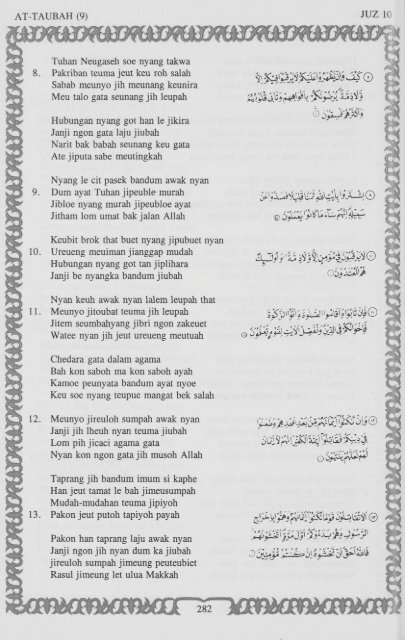 AT-TAUBAH (9)
JUZ 10
Tuhan Neugaseh soe nyang takwa
8. Pakriban teuma jeut keu roh salah
Sabab meunyo jih meunang keunira
Meu talo gata seunang jih leupah
Hubungan nyang got han le jikira
Janji ngon gata laju jiubah
Narit bak babah seunang keu gata
Ate jiputa sabe meutingkah
كَيْفَ وَإِنْ يَظْهَرُوا عَلَيْكُمْ لَا يَرْقُبُوا فِيكُمْ إِلًّا
وَلَا ذِمَّةً يُرْضُونَكُمْ بِأَفْوَاهِهِمْ وَتَأْبَىٰ قُلُوبُهُمْ
وَأَكْثَرُهُمْ فَٰسِقُونَ
Nyang le cit pasek bandum awak nyan
9. Dum ayat Tuhan jipeuble murah
Jibloe nyang murah jipeubloe ayat
Jitham lom umat bak jalan Allah
اِشْتَرَوْا بِاٰيٰتِ اللّٰهِ ثَمَنًا قَلِيلًا فَصَدُّوا عَنْ
سَبِيلِهِ إِنَّهُمْ سَاءَ مَا كَانُوا يَعْمَلُونَ
Keubit brok that buet nyang jipubuet nyan
10. Ureueng meuiman jianggap mudah
Hubungan nyang got tan jiplihara
Janji be nyangka bandum jiubah
لَا يَرْقُبُونَ فِي مُؤْمِنٍ إِلًّا وَلَا ذِمَّةً وَأُولٰئِكَ
هُمُ الْمُعْتَدُونَ
Nyan keuh awak nyan lalem leupah that
11. Meunyo jitoubat teuma jih leupah
Jitem seumbahyang jibri ngon zakeuet
Watee nyan jih jeut ureueng meutuah
فَإِنْ تَابُوا وَأَقَامُوا الصَّلٰوةَ وَاٰتَوُا الزَّكٰوةَ
فَإِخْوَانُكُمْ فِي الدِّينِ وَنُفَصِّلُ الْاٰيٰتِ لِقَوْمٍ يَعْلَمُونَ
Chedara gata dalam agama
Bah kon saboh ma kon saboh ayah
Kamoe peunyata bandum ayat nyoe
Keu soe nyang teupue mangat bek salah
12. Meunyo jireuloh sumpah awak nyan
Janji jih lheuh nyan teuma jiubah
Lom pih jicaci agama gata
Nyan kon ngon gata jih musoh Allah
وَإِنْ نَكَثُوا أَيْمَانَهُمْ مِنْ بَعْدِ عَهْدِهِمْ وَطَعَنُوا
فِي دِينِكُمْ فَقَاتِلُوا أَئِمَّةَ الْكُفْرِ إِنَّهُمْ لَا أَيْمَانَ
لَهُمْ لَعَلَّهُمْ يَنْتَهُونَ
Taprang jih bandum imum si kaphe
Han jeut tamat le bah jimeusumpah
Mudah-mudahan teuma jipiyoh
13. Pakon jeut putoh tapiyoh payah
Pakon han taprang laju awak nyan
Janji ngon jih nyan dum ka jiubah
jireuloh sumpah jimeung peuteubiet
Rasul jimeung let ulua Makkah
أَلَا تُقَاتِلُونَ قَوْمًا نَكَثُوا أَيْمَانَهُمْ وَهَمُّوا بِإِخْرَاجِ
الرَّسُولِ وَهُمْ بَدَءُوكُمْ أَوَّلَ مَرَّةٍ أَتَخْشَوْنَهُمْ
فَاللّٰهُ أَحَقُّ أَنْ تَخْشَوْهُ إِنْ كُنْتُمْ مُؤْمِنِينَ
282